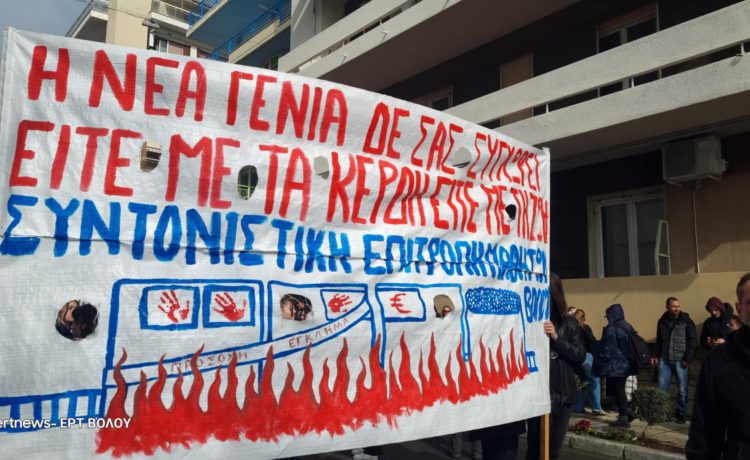 Η ΝΕΑ ΓΕΝΙΑ ΔΕ ΣΑΣ ΣΥΓΧΩΡΕΙ
ΕΙΤΕ ΜΕ ΤΑ ΚΕΡΔΗ ΕΙΤΕ ΜΕ ΤΗ ΖΩΗ
ΣΥΝΤΟΝΙΣΤΙΚΗ ΕΠΙΤΡΟΠΗ ΜΑΘΗΤΩΝ
ΒΟΛΟΥ
€
ΠΡΟΣΟΧΗ ΕΓΚΛΗΜΑ
ertnews- ΕΡΤ ΒΟΛΟΥ